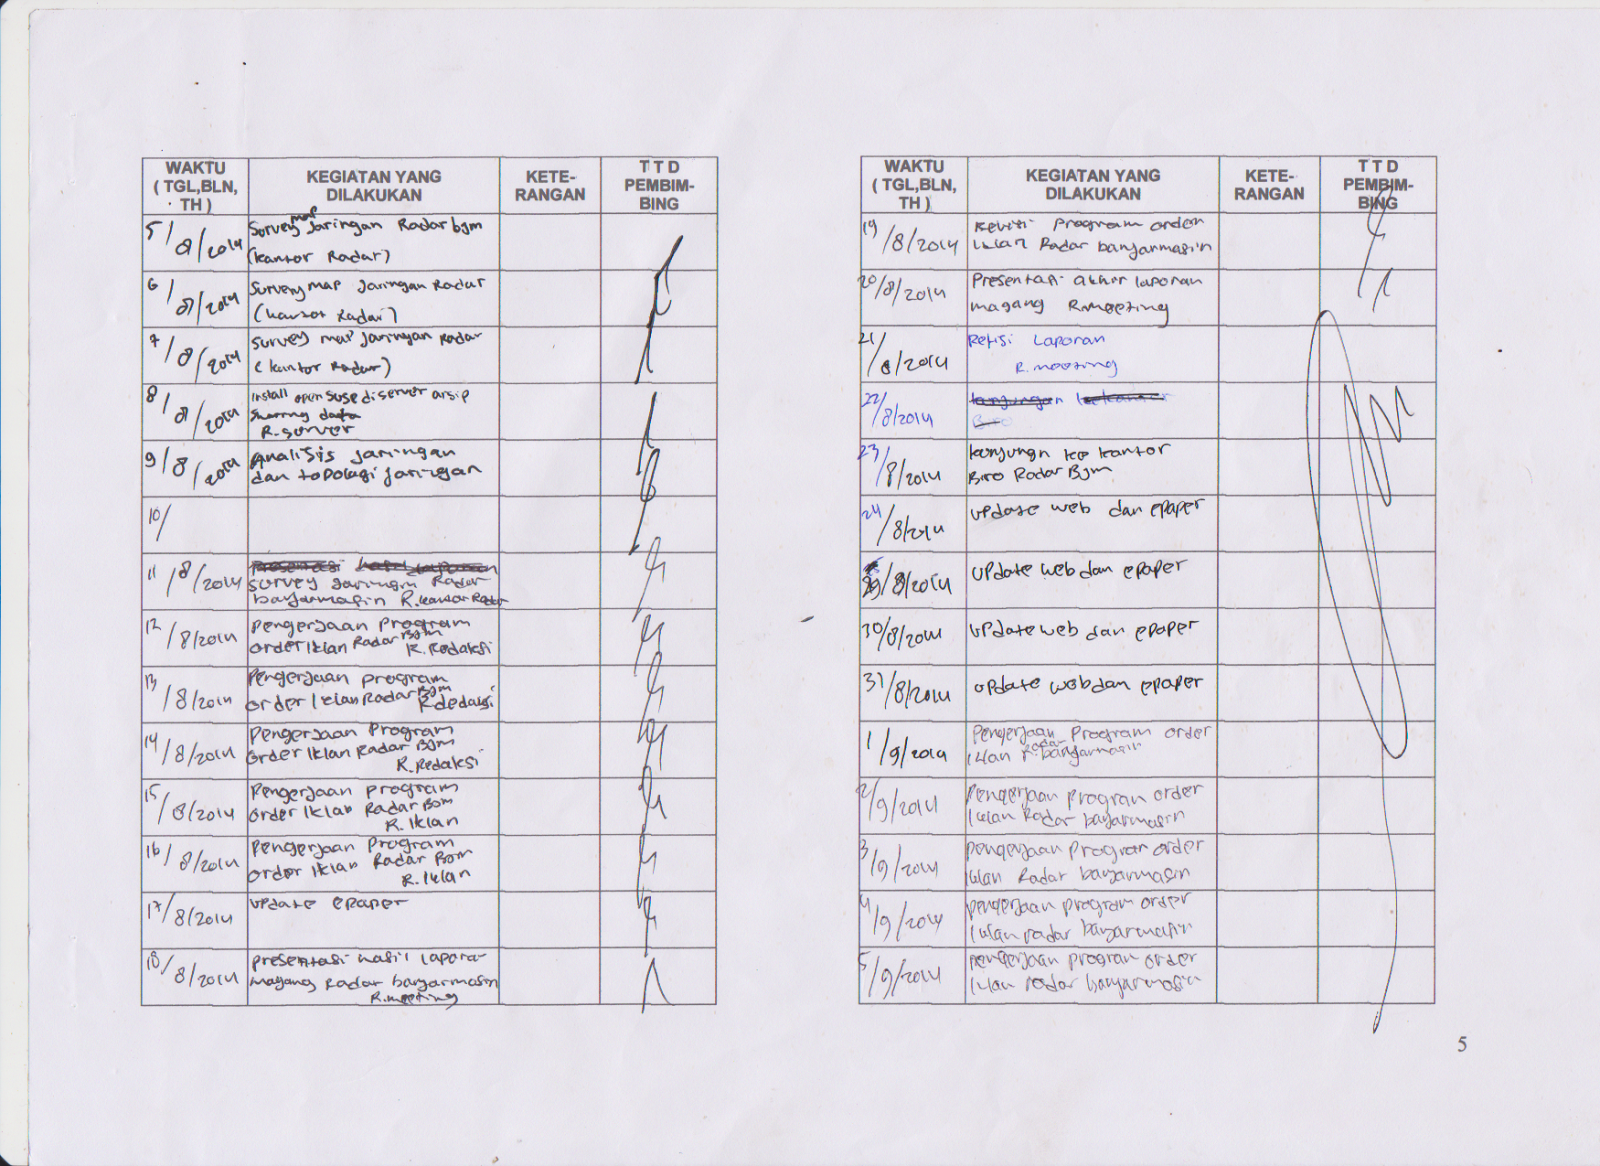 WAKTU
( TGL,BLN,
TH )
KEGIATAN YANG
DILAKUKAN
KETE-
RANGAN
T T D
PEMBIM-
BING
5/8/2014
Survey map Jaringan Radar bjm
(kantor Radar)
6/8/2014
Survey map Jaringan Radar
(kantor Radar)
7/8/2014
Survey map Jaringan Radar
(kantor Radar)
8/8/2014
Install open suse di server arsip
Sharing data
R.server
9/8/2014
Analisis Jaringan
dan topologi Jaringan
10/
11/8/2014
survey Jaringan Radar
banjarmasin R.kantor Radar
12/8/2014
Pengerjaan Program
order Iklan Radar Bjm
R.Redaksi
13/8/2014
Pengerjaan program
order Iklan Radar Bjm
R.dedaksi
14/8/2014
Pengerjaan Program
order Iklan Radar Bjm
R.Redaksi
15/8/2014
Pengerjaan program
order Iklan Radar Bjm
R.Iklan
16/8/2014
Pengerjaan Program
order Iklan Radar Bjm
R.Iklan
17/8/2014
update epaper
18/8/2014
presentasi hasil laporan
magang Radar banjarmasin
R.meeting
WAKTU
( TGL,BLN,
TH )
KEGIATAN YANG
DILAKUKAN
KETE-
RANGAN
T T D
PEMBIM-
BING
19/8/2014
Revisi Program order
Iklan Radar banjarmasin
20/8/2014
Presentasi akhir laporan
magang R.meeting
21/8/2014
Refisi Laporan
R.meeting
22/8/2014
23/8/2014
kunjungn ke kantor
Biro Radar Bjm
24/8/2014
update web dan epaper
29/8/2014
update web dan epaper
30/8/2014
update web dan epaper
31/8/2014
update web dan epaper
1/9/2014
Pengerjaan Program order
Iklan Radar banjarmasin
2/9/2014
Pengerjaan program order
Iklan Radar banjarmasin
3/9/2014
pengerjaan program order
Iklan Radar banjarmasin
4/9/2014
pengerjaan program order
Iklan radar banjarmasin
5/9/2014
pengerjaan program order
Iklan radar banjarmasin
5